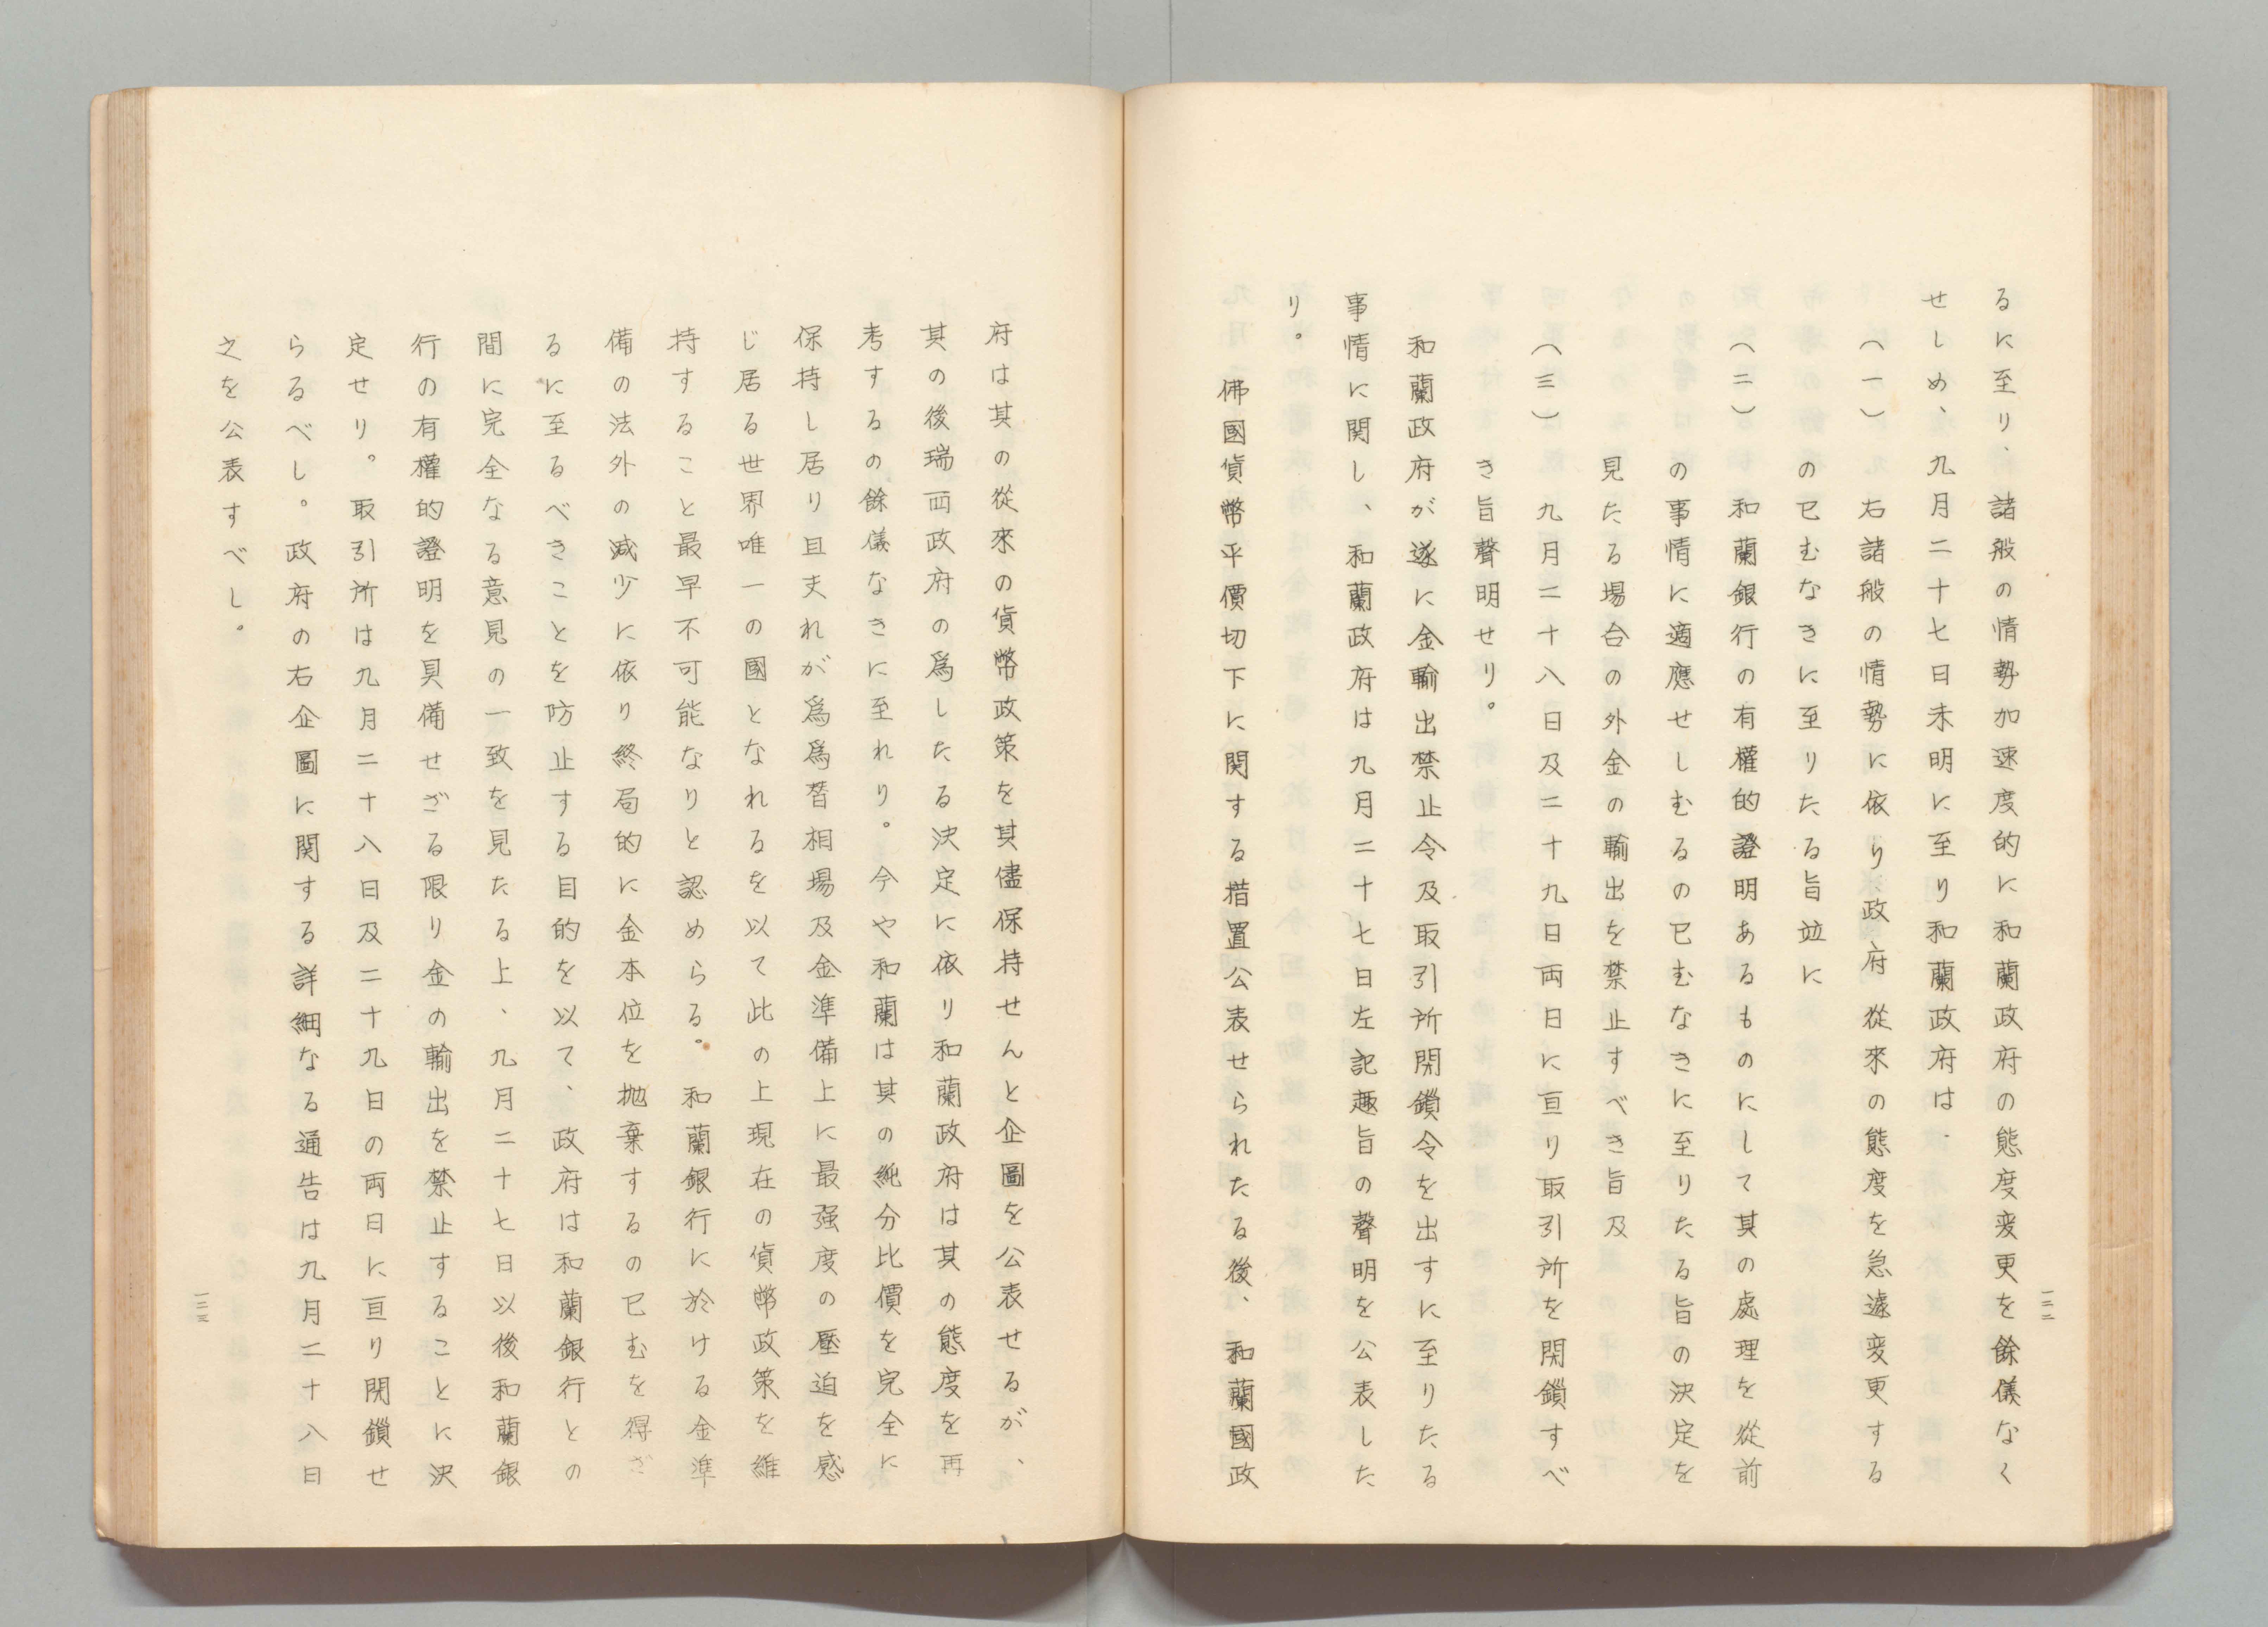 るに至り、諸般の情勢加速度的に和蘭政府の態度変更を餘儀なく
せしめ、九月二十七日未明に至り和蘭政府は、
(一) 右諸般の情勢に依り政府從來の態度を急遽変更する
の已むなきに至りたる旨竝に
(二) 和蘭銀行の有權的證明あるものにして其の處理を從前
の事情に適應せしむるの已むなきに至りたる旨の決定を
見たる場合の外金の輸出を禁止すべき旨及
(三) 九月二十八日及二十九日両日に亘り取引所を閉鎖すべ
き旨聲明せり。
和蘭政府が遂に金輸出禁止令及取引所閉鎖令を出すに至りたる
事情に関し、和蘭政府は九月二十七日左記趣旨の聲明を公表した
り。
佛國貨幣平價切下に関する措置公表せられたる後、和蘭國政
一二二
府は其の從來の貨幣政策を其儘保持せんと企圖を公表せるが、
其の後瑞西政府の爲したる決定に依り和蘭政府は其の態度を再
考するの餘儀なきに至れり。今や和蘭は其の純分比價を完全に
保持し居り且夫れが爲爲替相場及金準備上に最强度の壓迫を感
じ居る世界唯一の國となれるを以て此の上現在の貨幣政策を維
持すること最早不可能なりと認めらる。和蘭銀行に於ける金準
備の法外の減少に依り終局的に金本位を抛棄するの已むを得ざ
るに至るべきことを防止する目的を以て、政府は和蘭銀行との
間に完全なる意見の一致を見たる上、九月二十七日以後和蘭銀
行の有權的證明を具備せざる限り金の輸出を禁止することに決
定せり。取引所は九月二十八日及二十九日の両日に亘り閉鎖せ
らるべし。政府の右企圖に関する詳細なる通告は九月二十八日
之を公表すべし。
一二三